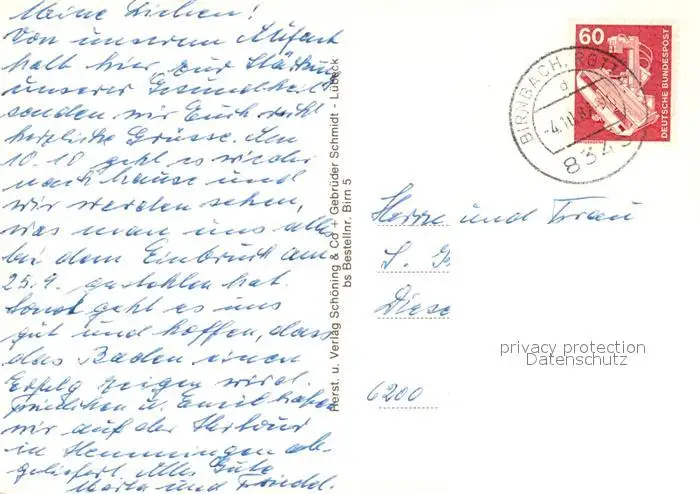 Meine Lieben!
Von unserem Aufent
halt hier, zur Stärkung
unserer Gesundheit
senden wir Euch recht
herzliche Grüsse. Am
10.10 geht es wieder
nach hause und
wir werden sehen,
was man uns alles
bei dem Einbruch am
25.9. gestohlen hat.
Sonst geht es uns
gut und hoffen, dass
das Baden einen
Erfolg zeigen wird.
Friedchen u. Emil haben
wir auf der Herfour
in Hemmingen ab-
geliefert. Alles Gute
Marta und Friedel.
Herst. u. Verlag Schöning & Co + Gebrüder Schmidt - Lübeck
bs Bestellnr. Birn 5
60
DEUTSCHE BUNDESPOST
BIRNBACH, ROTTAL
-4.10.8
Herrn und Frau
S. G
Diese
6200
privacy protection
Datenschutz